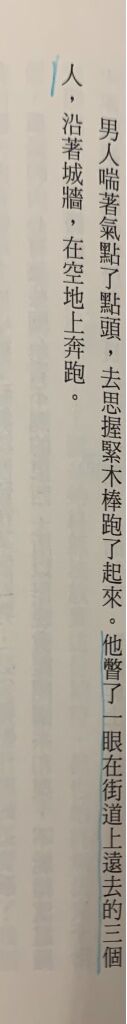 男人喘著氣點了點頭，去思握緊木棒跑了起來。他瞥了一眼在街道上遠去的三個
人，沿著城牆，在空地上奔跑。